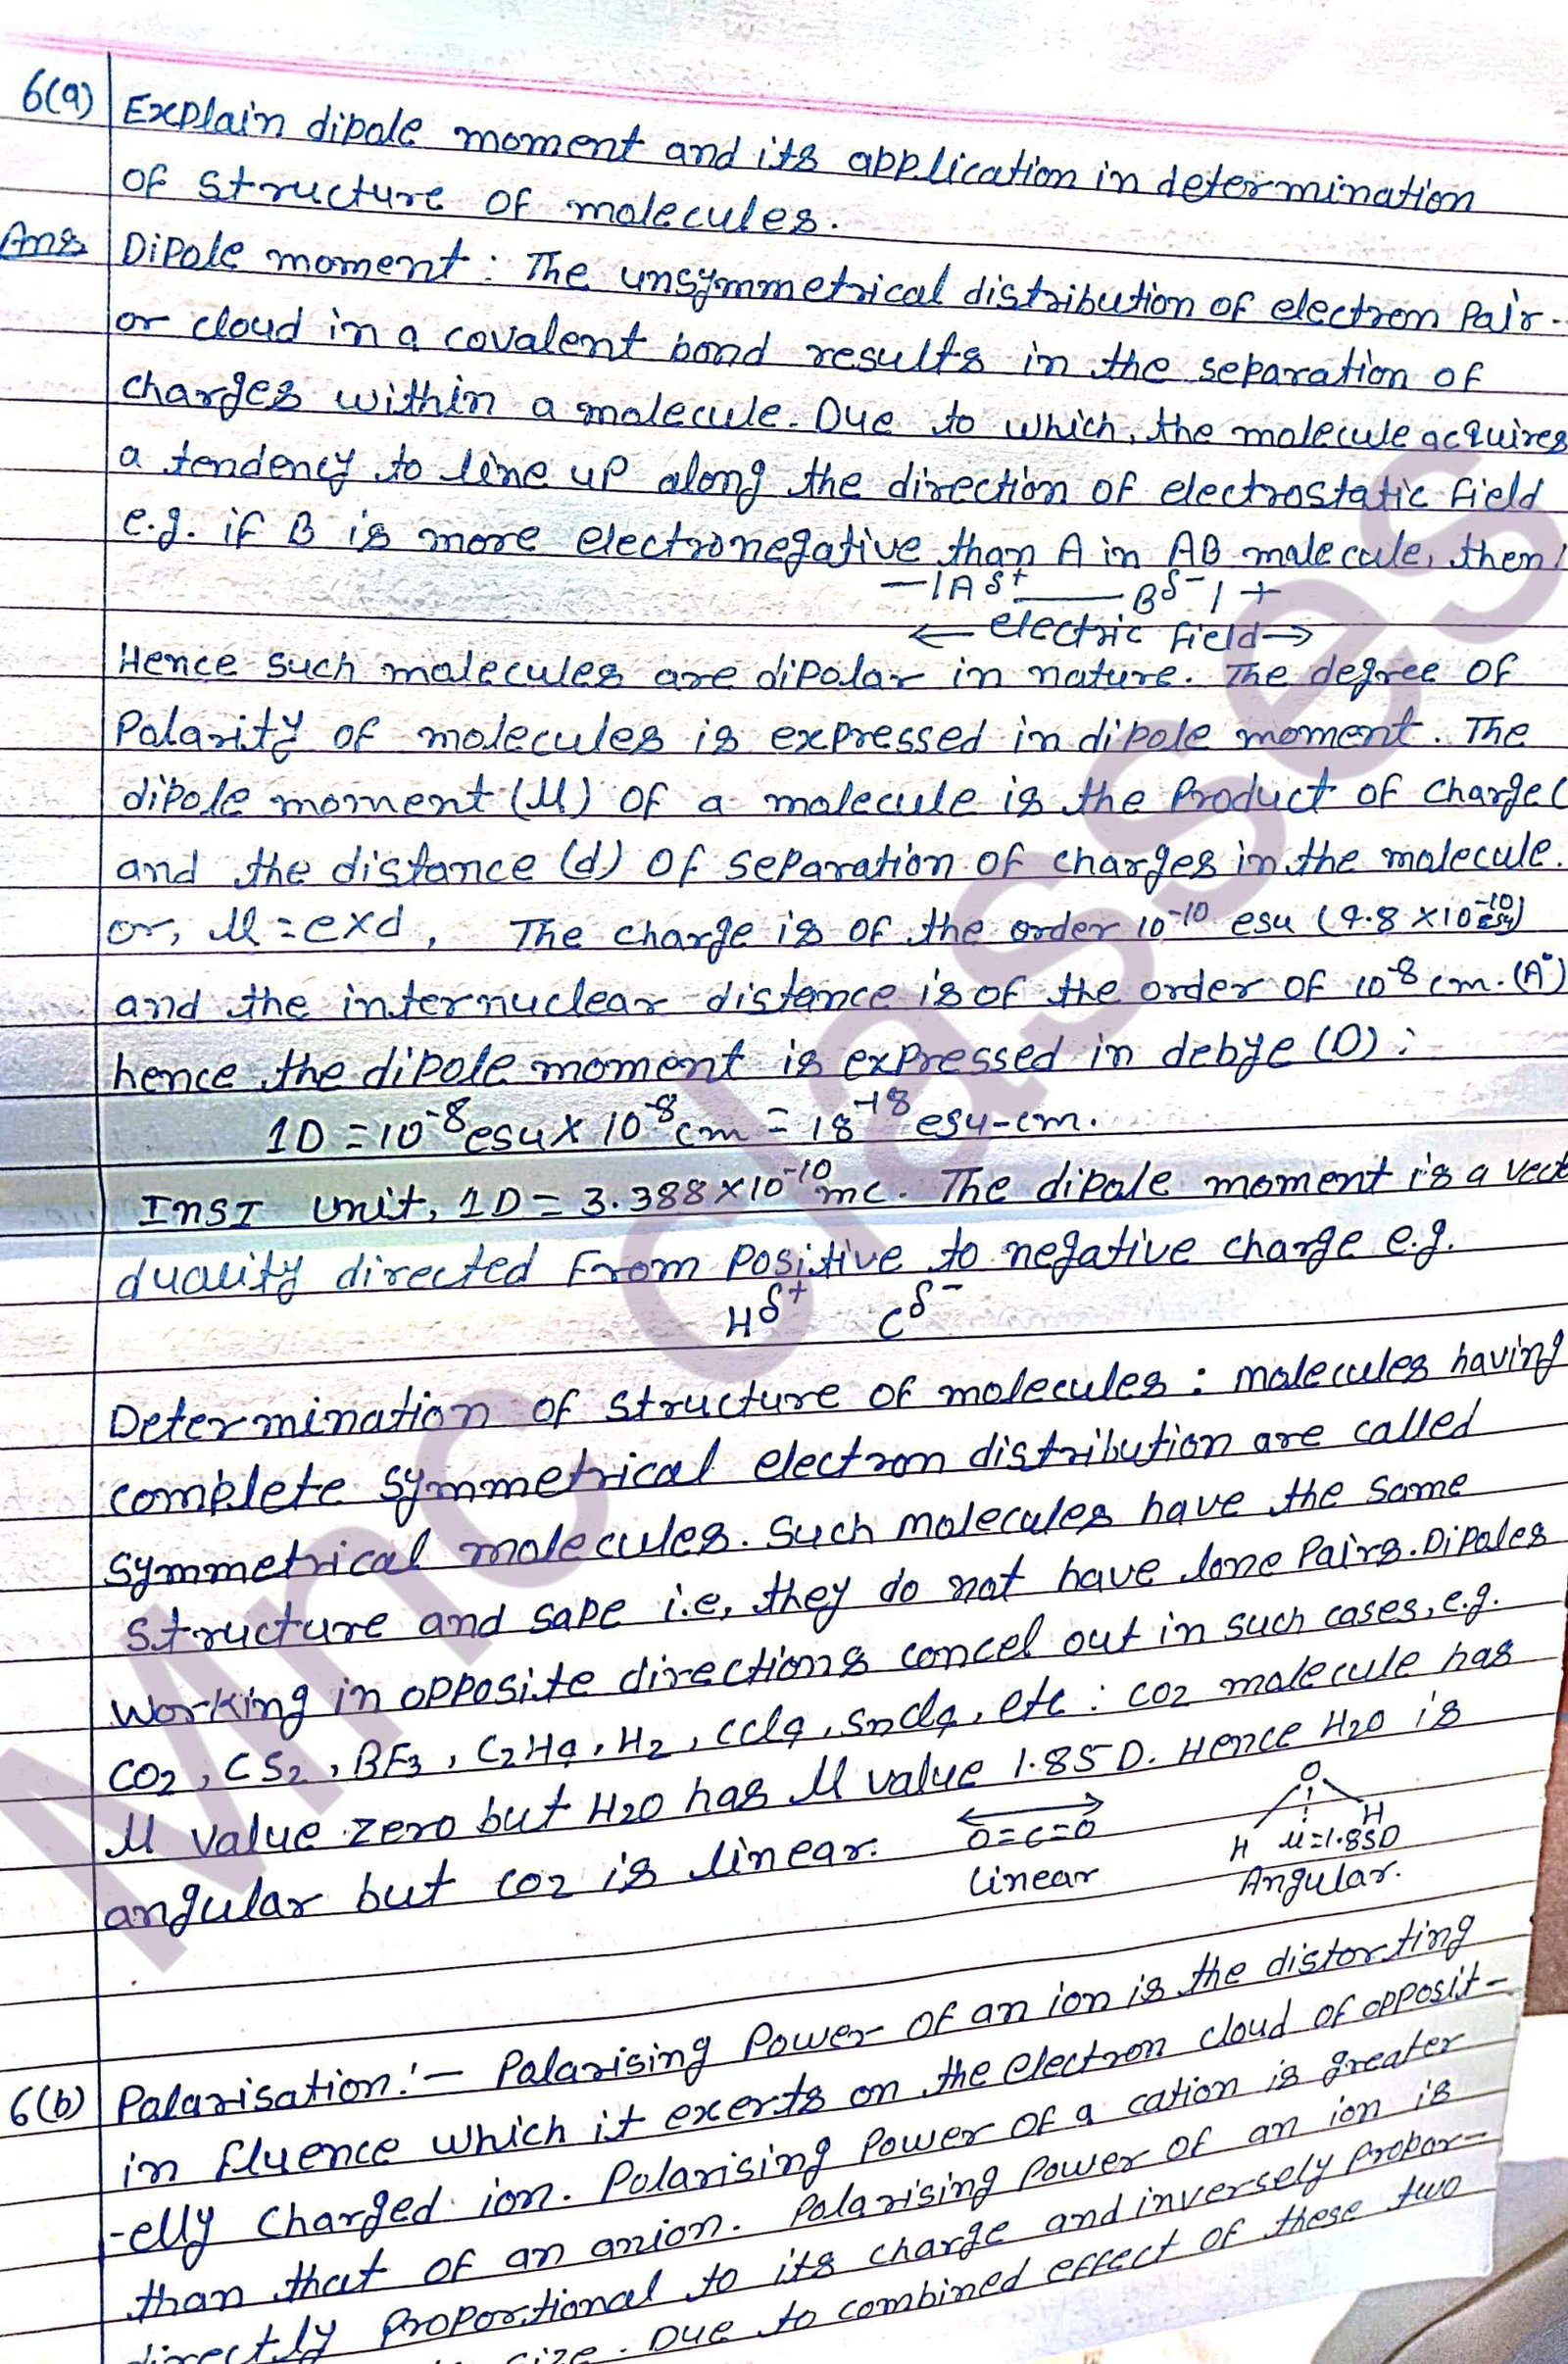 6(a) Explain dipole moment and its application in determination
of structure of molecules.
Ans Dipole moment : The unsymmetrical distribution of electron Pair-
or cloud in a covalent bond results in the separation of
charges within a molecule. Due to which, the molecule acquires
a tendency to line up along the direction of electrostatic field
e.g. if B is more electronegative than A in AB molecule, then
—|Aδ+ —— Bδ-| +
← electric field →
Hence such molecules are dipolar in nature. The degree of
Polarity of molecules is expressed in dipole moment. The
dipole moment (μ) of a molecule is the Product of charge(
and the distance (d) of separation of charges in the molecule.
or, μ = e×d, The charge is of the order 10⁻¹⁰ esu (4.8 ×10⁻¹⁰ esu)
and the internuclear distance is of the order of 10⁻⁸ cm. (A°)
hence the dipole moment is expressed in debye (D) :
1D = 10⁻⁸ esu × 10⁻⁸ cm = 18⁻¹⁸ esu-cm.
In SI unit, 1D = 3.388×10⁻¹⁰ mc. The dipole moment is a vect
duality directed from positive to negative charge e.g.
Hδ+ Cδ-
Determination of structure of molecules : molecules having
complete symmetrical electron distribution are called
symmetrical molecules. Such molecules have the same
structure and sape i.e, they do not have lone Pairs. Dipoles
working in opposite directions concel out in such cases, e.g.
CO2, CS2, BF3, C2H4, H2, CCl4, SnCl4, etc : CO2 molecule has
μ value zero but H2O has μ value 1.85 D. Hence H2O is
angular but CO2 is linear.
O=C=O
Linear
O
H H
μ=1.85D
Angular.
6(b) Polarisation :— Polarising Power of an ion is the distorting
in fluence which it exerts on the electron cloud of opposit-
-elly charged ion. Polarising Power of a cation is greater
than that of an anion. Polarising Power of an ion is
directly proportional to its charge and inversely propor-
size. Due to combined effect of these two
Mnc classes